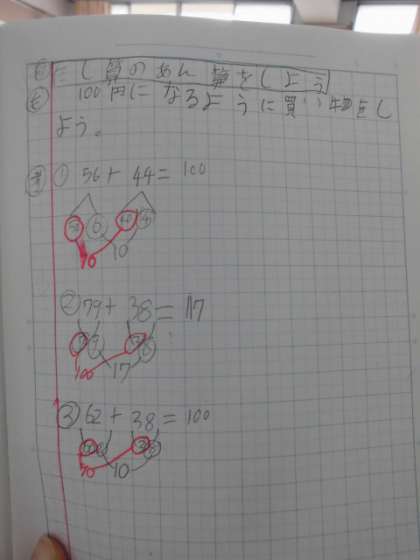 め たし算のあん算をしよう
も 100円になるように買い物をし
よう。
① 56+ 44= 100
50 6 40 4
90 10
② 79+ 38= 117
100 17
③ 62+ 38=100
90 10